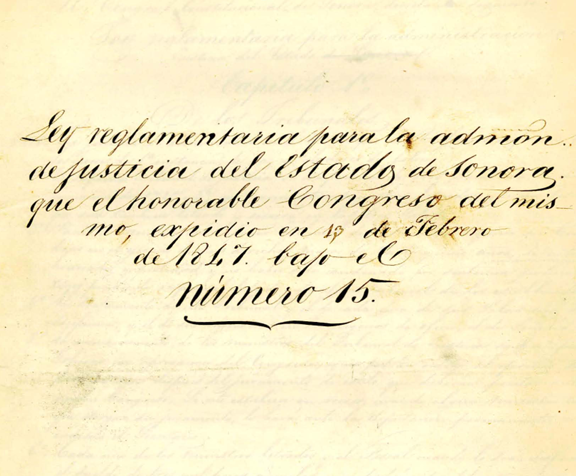 Ley reglamentaria para la admōn.
de justicia del Estado de Sonora.
que el honorable Congreso del mis-
mo, expidio en 13 de Febrero
de 1847. bajo el
Número 15.